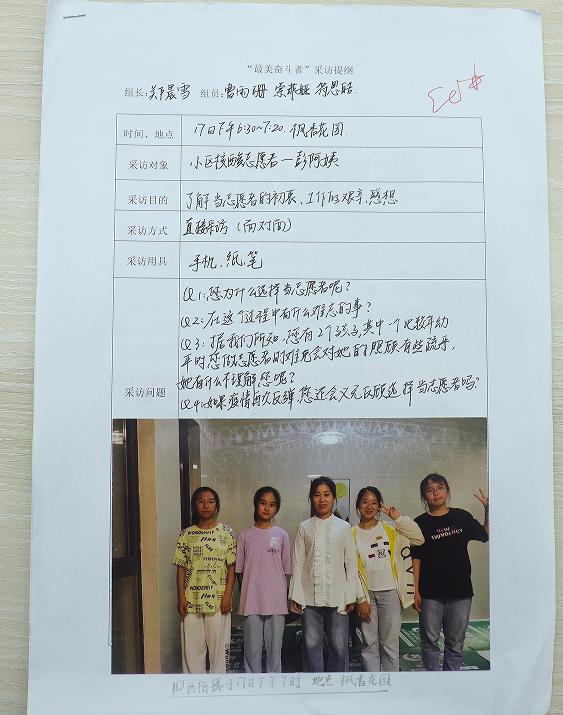 “最美奋斗者”采访提纲
组长：郑晨雪 组员：曹雨珊
时间、地点 17日下午6:30~7:20 枫香花园
采访对象 小区核酸志愿者—彭阿姨
采访目的 了解当志愿者的初衷、工作的艰辛、感想
采访方式 直接采访（面对面）
采访用具 手机、纸、笔
Q1:您为什么选择当志愿者呢？
Q2:在这个过程中有什么难忘的事？
Q3:据我们所知,您有2个孩子,其中一个比较年幼
平时您做志愿者时难免会对她的照顾有些疏乎,
她有什么不理解您呢？
采访问题
Q4:如果疫情再次反弹,您还会义无反顾选择当志愿者吗？
照片拍摄于17日下午7时 地点:枫香花园